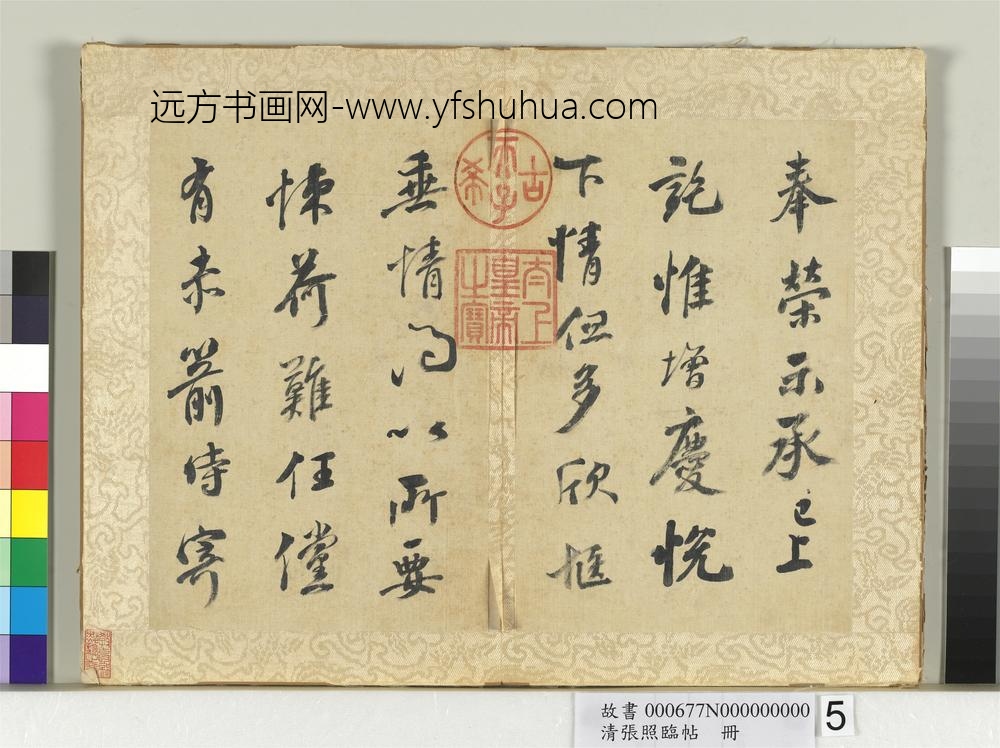 远方书画网-www.yfshuhua.com
奉榮示承已上
訖惟增慶悅
下情但多欣
垂情得以所要
悚荷難任儻
有未前時寄
古希天子
太上皇帝之寶
故書 000677N000000000
清張照臨帖 冊
5